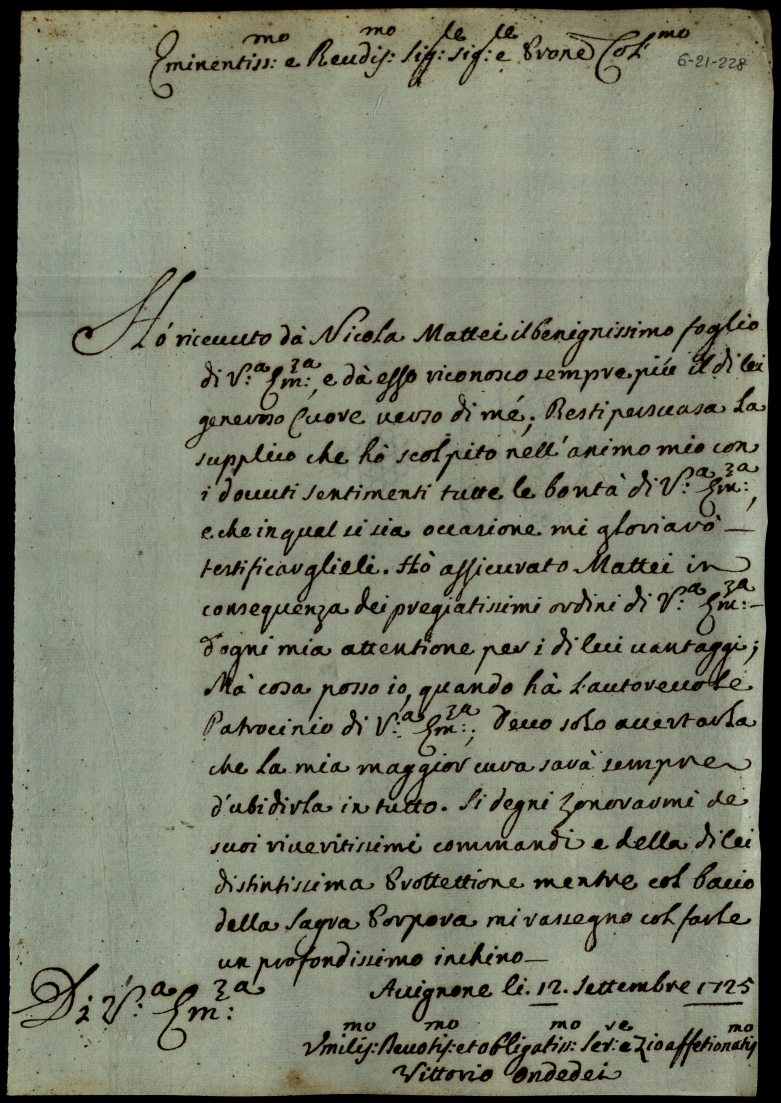 Eminentiss:mo e Reudis:mo Sig:re Sig:re e Prone Col:mo
6-21-228
Hó riceuuto dà Nicola Mattei il benignissimo foglio
di V:a Em:za, e dà esso riconosco sempre più il di lei
generoso Cuore uerso di mé; Resti persuasa La
supplico che hò scolpito nell' animo mio con
i douuti sentimenti tutte le bontà di V:a Em:za,
e che in qual si sia occasione mi gloriarò
testificarglieli. Hò assicurato Mattei in
consequenza dei pregiatissimi ordini di V:a Em:za
d'ogni mia attentione per i di lui uantaggi;
Mà cosa posso io, quando hà L'autoreuole
Patrocinio di V:a Em:za; Deuo solo accertarla
che La mia maggior cura sarà sempre
d'ubidirla in tutto. Si degni honorarmi de
suoi riueritissimi commandi e della di lei
distintissima Prottettione mentre col bacio
della Sagra Porpora mi rassegno col farle
un profondissimo inchino
Di V:a Em:za
Auignone li. 12. Settembre 1725
Vmilis:mo Deuotis:mo et obligatiss:mo Ser:re e Zio affetionatis:mo
Vittorio Ondedei